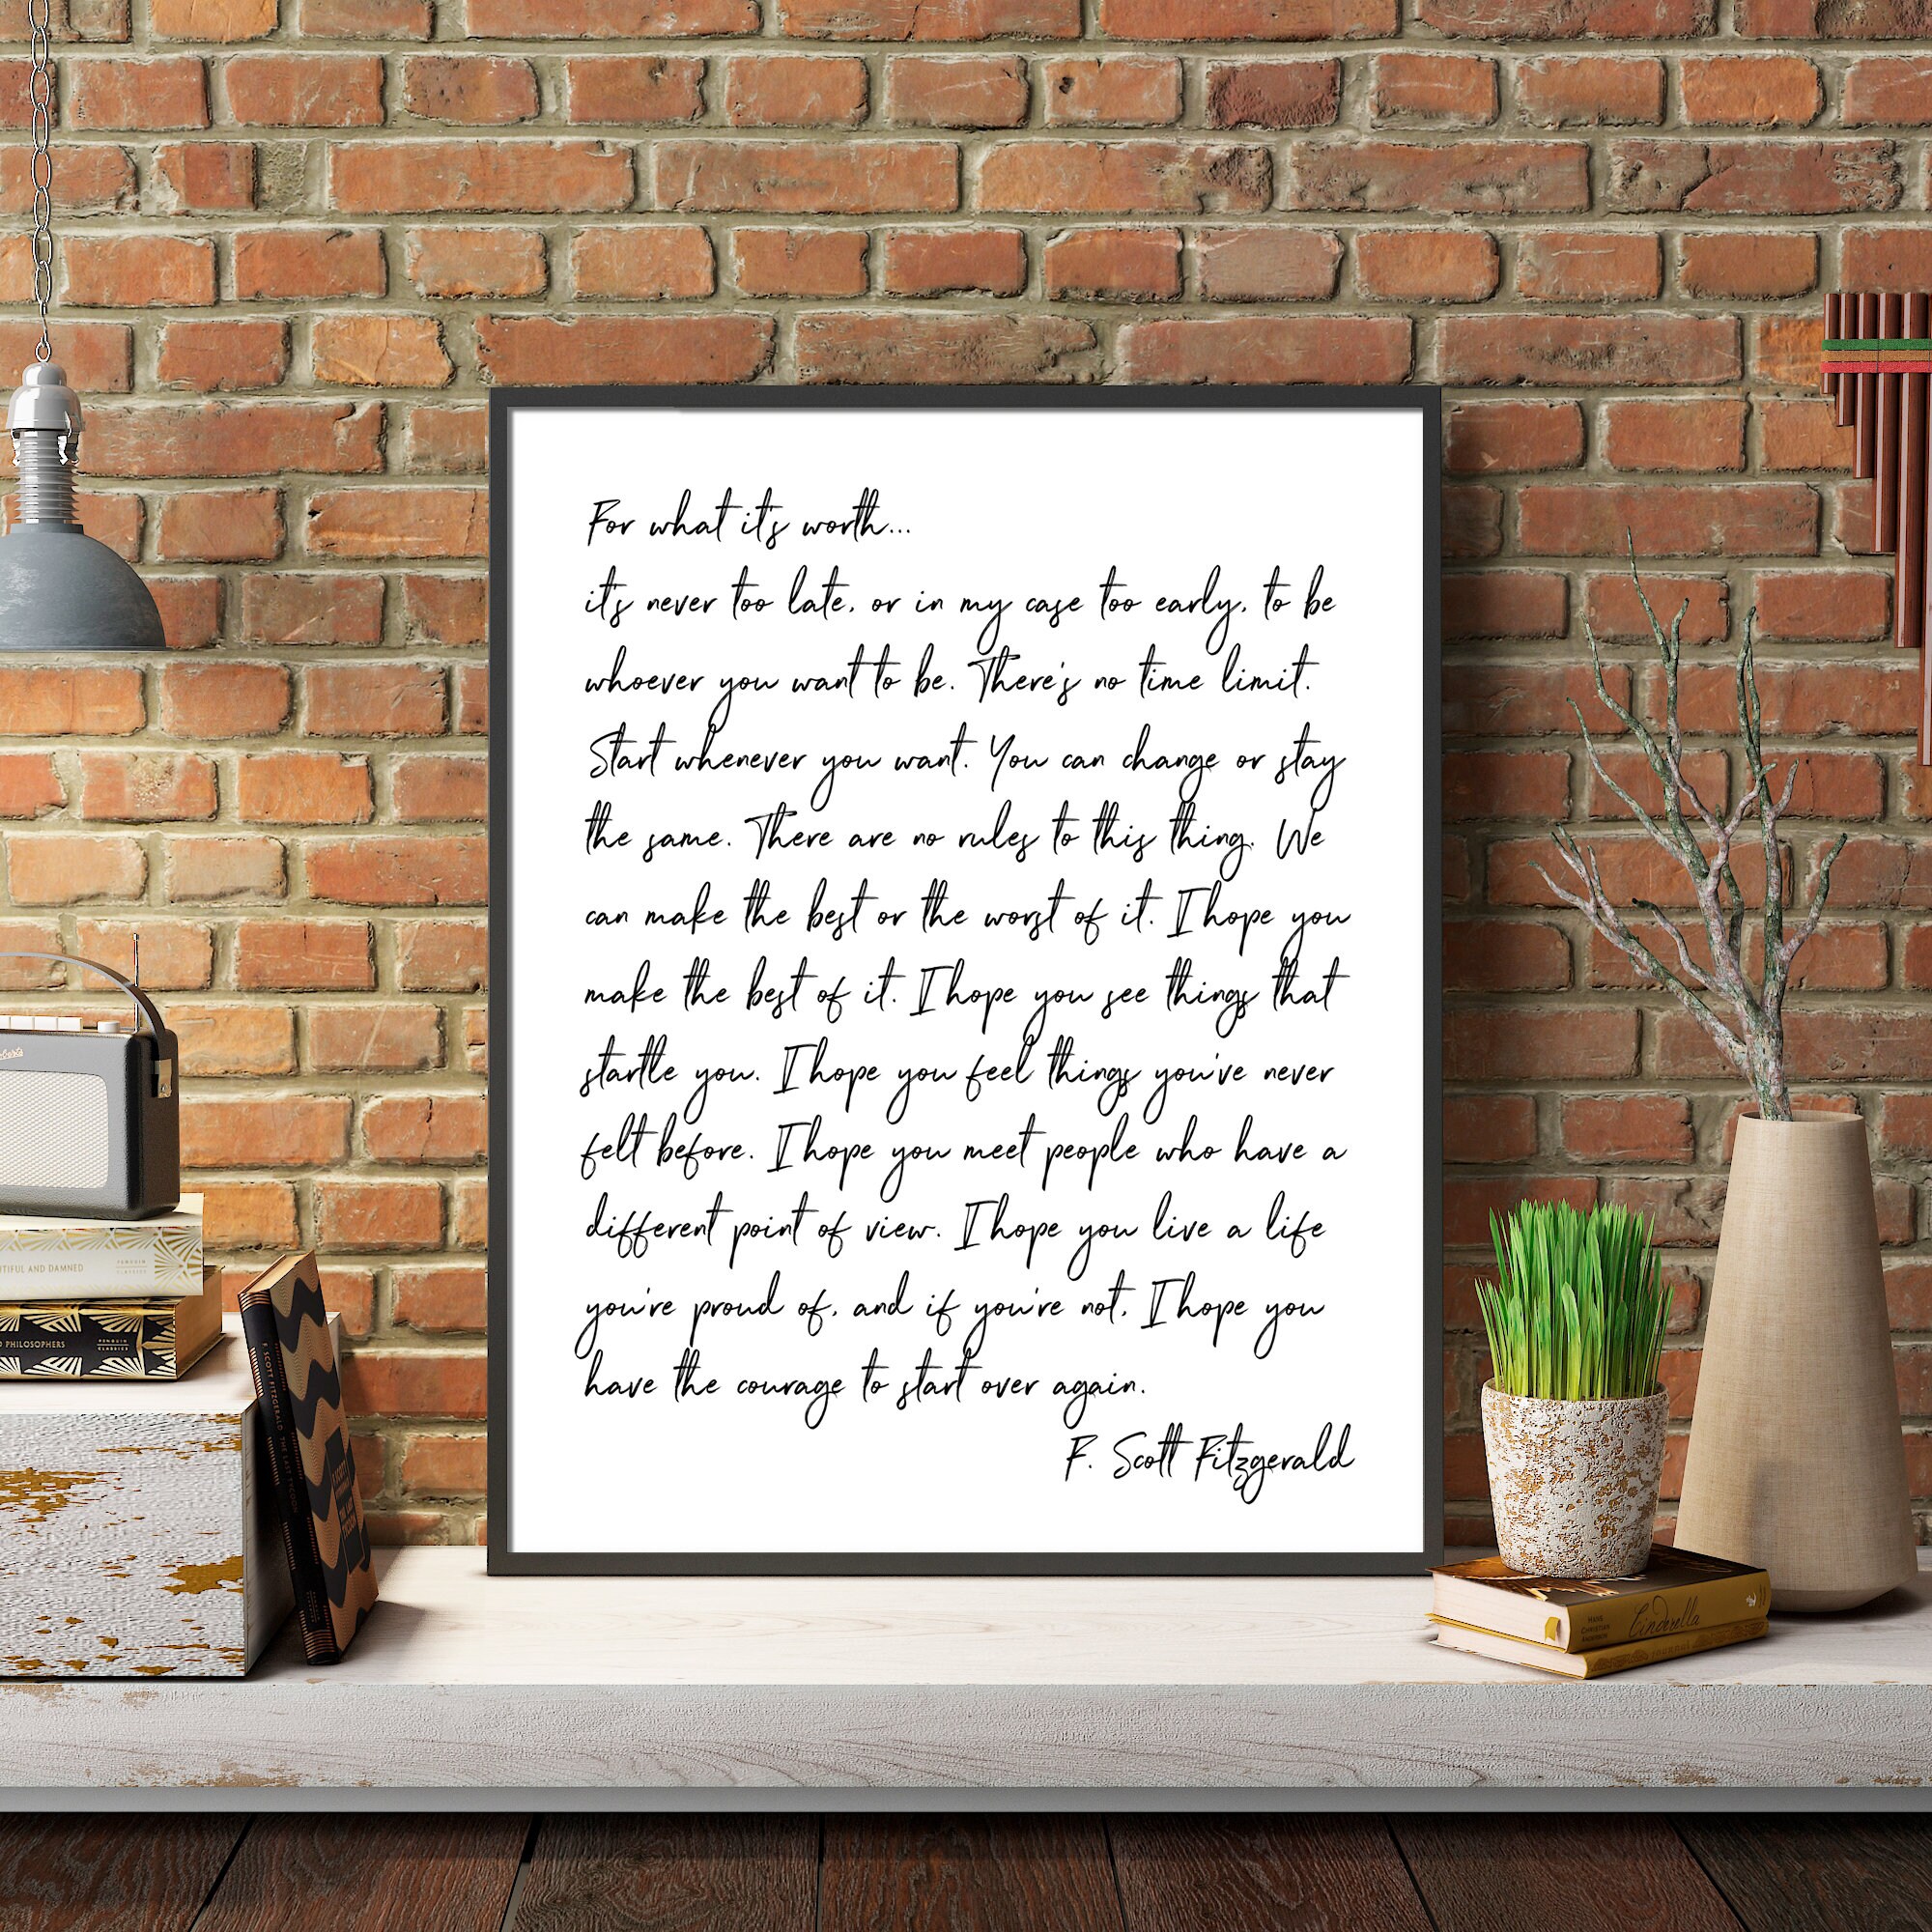 For what it's worth...
it's never too late, or in my case too early, to be
whoever you want to be. There's no time limit.
Start whenever you want. You can change or stay
the same. There are no rules to this thing. We
can make the best or the worst of it. I hope you
make the best of it. I hope you see things that
startle you. I hope you feel things you've never
felt before. I hope you meet people who have a
different point of view. I hope you live a life
you're proud of, and if you're not, I hope you
have the courage to start over again.
F. Scott Fitzgerald
AND DAMNED
PENGUIN
CLASSICS
PHILOSOPHERS
PENGUIN
CLASSICS
F. SCOTT FITZGERALD THE LAST TYCOON
HANS
CHRISTIAN
ANDERSEN
Cinderella